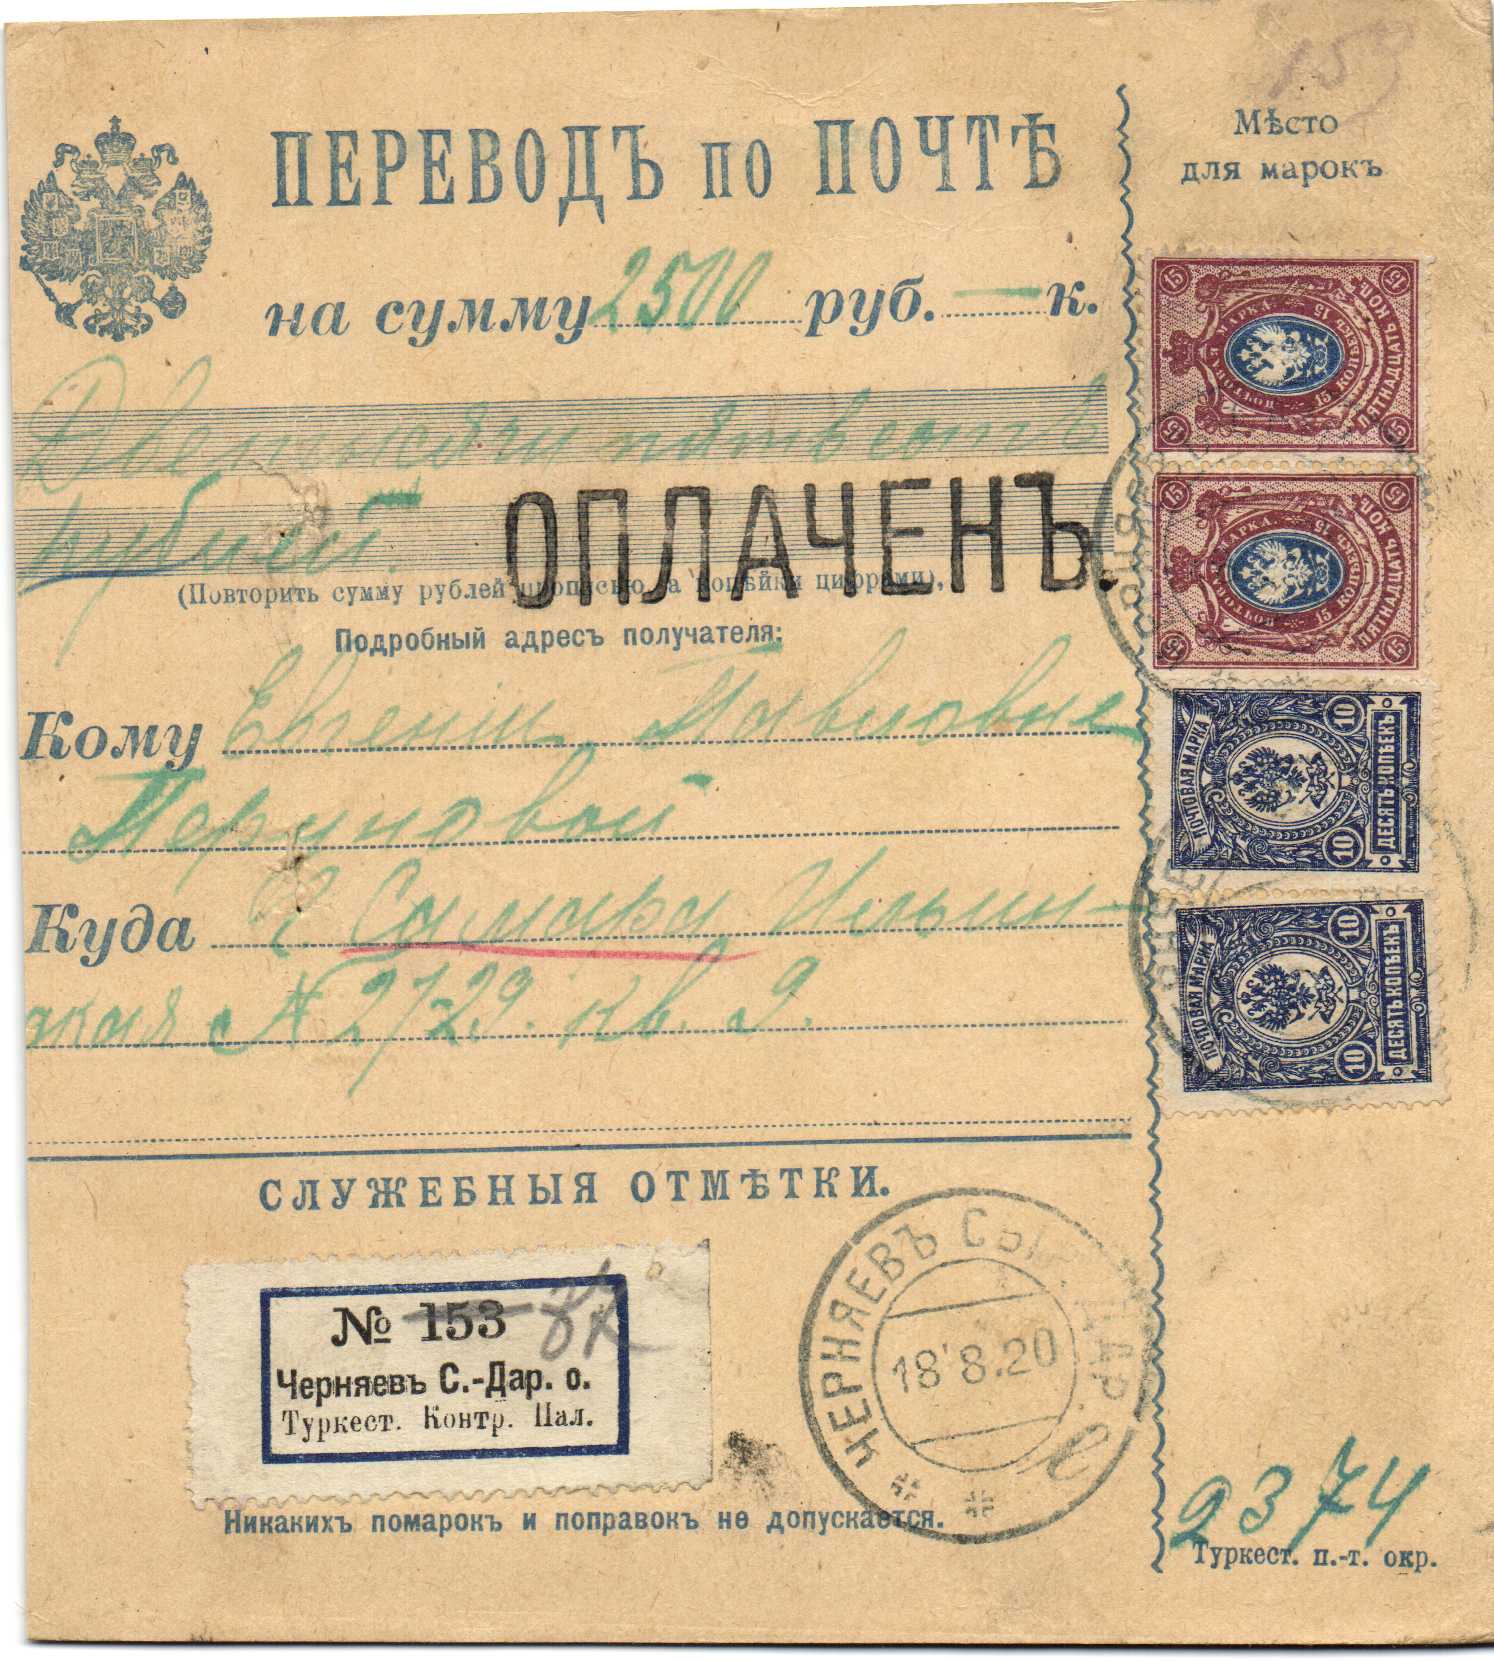 159
Мѣсто
для марокъ
ПЕРЕВОДЪ по ПОЧТѢ
на сумму 2500 руб. — к.
Две тысячи пятьсотъ
рублей.
ОПЛАЧЕНЪ.
(Повторить сумму рублей прописью, а копѣйки цифрами),
Подробный адресъ получателя:
Кому Евгеніи Павловне
Куда Г. Самара Ильин-
ская № 27-29. кв. 9.
15 ПОЧТОВАЯ МАРКА 15 КОПѢЕКЪ 15
ПЯТНАДЦАТЬ КОП.
15 ПОЧТОВАЯ МАРКА 15 КОПѢЕКЪ 15
ПЯТНАДЦАТЬ КОП.
ПОЧТОВАЯ МАРКА
10 10
ДЕСЯТЬ КОПѢЕКЪ
ПОЧТОВАЯ МАРКА
10 10
ДЕСЯТЬ КОПѢЕКЪ
СЛУЖЕБНЫЯ ОТМѢТКИ.
№ 153
Черняевъ С.-Дар. о.
Туркест. Контр. Пал.
ЧЕРНЯЕВЪ СЫР. ДАР.
18.8.20
Никакихъ помарокъ и поправокъ не допускается.
2374
Туркест. п.-т. окр.